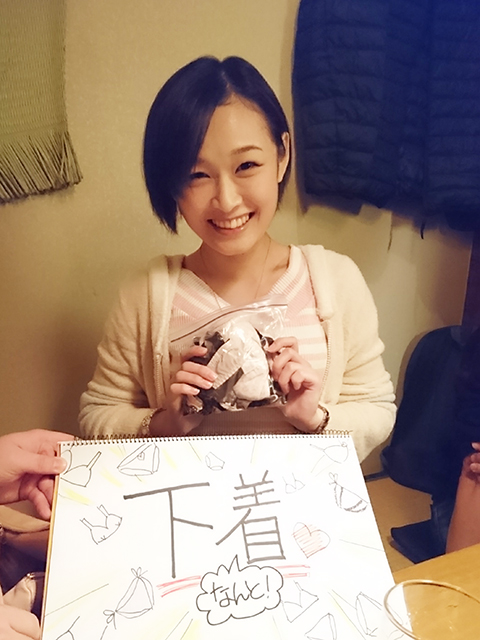 下着
なんと!